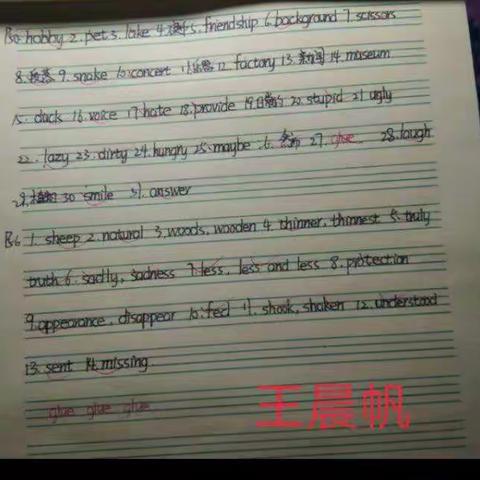 hobby 2. pet 3. lake 4. 5. friendship 6. background 7. scissors
8. 9. snake 10. concert 11. 乐器 12. factory 13. 新闻 14. museum
15. duck 16. voice 17. hate 18. provide 19. 20. stupid 21. ugly
22. lazy 23. dirty 24. hungry 25. maybe 26. 27. glue 28. laugh
29. 30. smile 31. answer
P56 1. sheep 2. natural 3. woods, wooden 4. thinner, thinnest 5. truly
truth 6. sadly, sadness 7. less, less and less 8. protection
9. appearance, disappear 10. feel 11. shook, shaken 12. understood
13. sent 14. missing.
glue glue glue
王晨帆